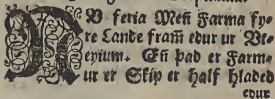 NU feria Men Farma fy-
re Lande fram edur ur Ve-
reyium. En þad er Farm-
ur er Skip er half hladed
edur